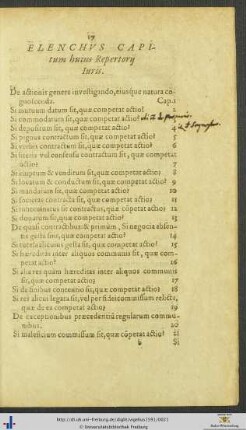 ELENCHVS CAPI-
tum huius Repertorij
Iuris.
De actionis genere inuestigando, eiusque natura co-
gnoscenda. Cap. 1
Si mutuum datum sit, quæ competat actio? 2
Si commodatum sit, quæ competat actio? 3
Si depositum sit, quæ competat actio? 4
Si pignus contractum sit, quæ competat actio? 5
Si verbis contractum sit, quæ competat actio? 6
Si literis vel consensu contractum sit, quæ competat
actio? 7
Si emptum & venditum sit, quæ competat actio? 8
Si locatum & conductum sit, quæ competat actio? 9
Si mandatum sit, quæ competat actio? 10
Si societas contracta sit, quæ competat actio? 11
Si
sit, quæ competat actio? 12
Si sit, quæ competat actio? 13
De quasi contractibus & primùm, Si negocia absen-
tis gesta sint, quæ competat actio? 14
Si tutela gesta sit, quæ competat actio? 15
Si hæreditas inter aliquos communis sit, quæ com-
petat actio? 16
Si alia res quàm hæreditas inter aliquos communis
sit, quæ competat actio? 17
Si de finibus contentio sit, quæ competat actio? 18
Si res alicui legata sit, vel per fideicommissum relicta,
quæ de ea competat actio? 19
De exceptionibus præcedentiū regularum commu-
nibus. 20
Si maleficium commissum sit, quæ cōpetat actio? 21
b Si
© Universitätsbibliothek Freiburg